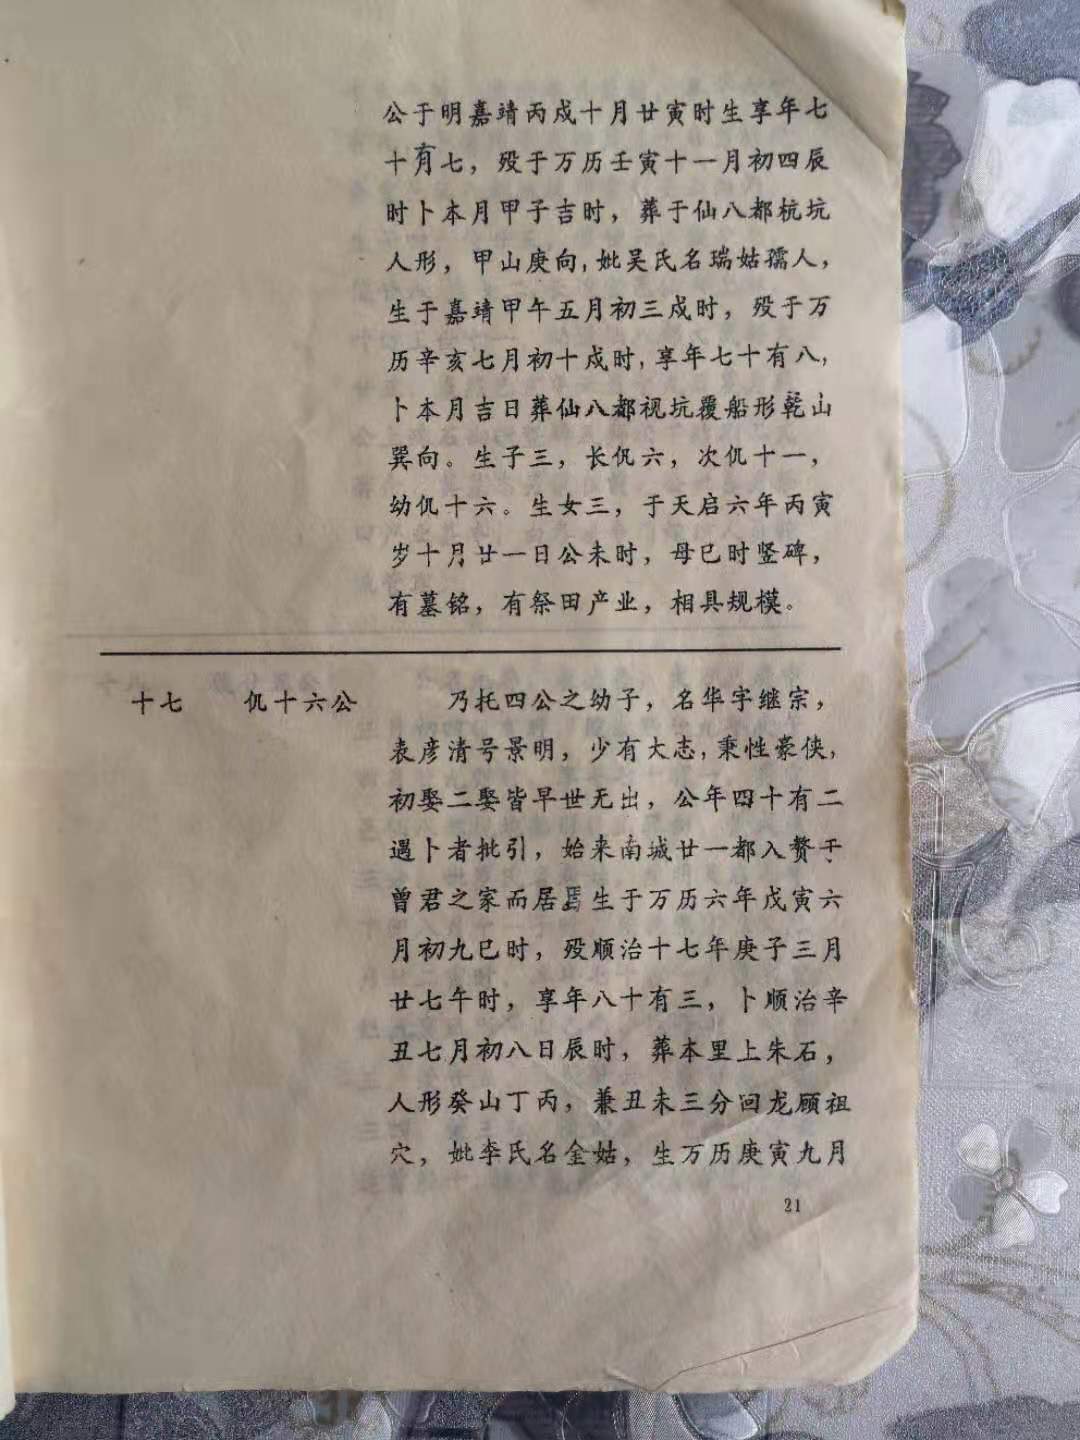 公于明嘉靖丙戍十月廿寅时生享年七
十有七，殁于万历壬寅十一月初四辰
时卜本月甲子吉时，葬于仙八都杭坑
人形，甲山庚向，妣吴氏名瑞姑孺人，
生于嘉靖甲午五月初三戍时，殁于万
历辛亥七月初十戍时，享年七十有八，
卜本月吉日葬仙八都视坑覆船形乾山
巽向。生子三，长仉六，次仉十一，
幼仉十六。生女三，于天启六年丙寅
岁十月廿一日公未时，母巳时竖碑，
有墓铭，有祭田产业，相具规模。
十七 仉十六公 乃托四公之幼子，名华字继宗，
表彦清号景明，少有大志，秉性豪侠，
初娶二娶皆早世无出，公年四十有二
遇卜者批引，始来南城廿一都入赘于
曾君之家而居焉生于万历六年戊寅六
月初九巳时，殁顺治十七年庚子三月
廿七午时，享年八十有三，卜顺治辛
丑七月初八日辰时，葬本里上朱石，
人形癸山丁丙，兼丑未三分回龙顾祖
穴，妣李氏名金姑，生万历庚寅九月
21